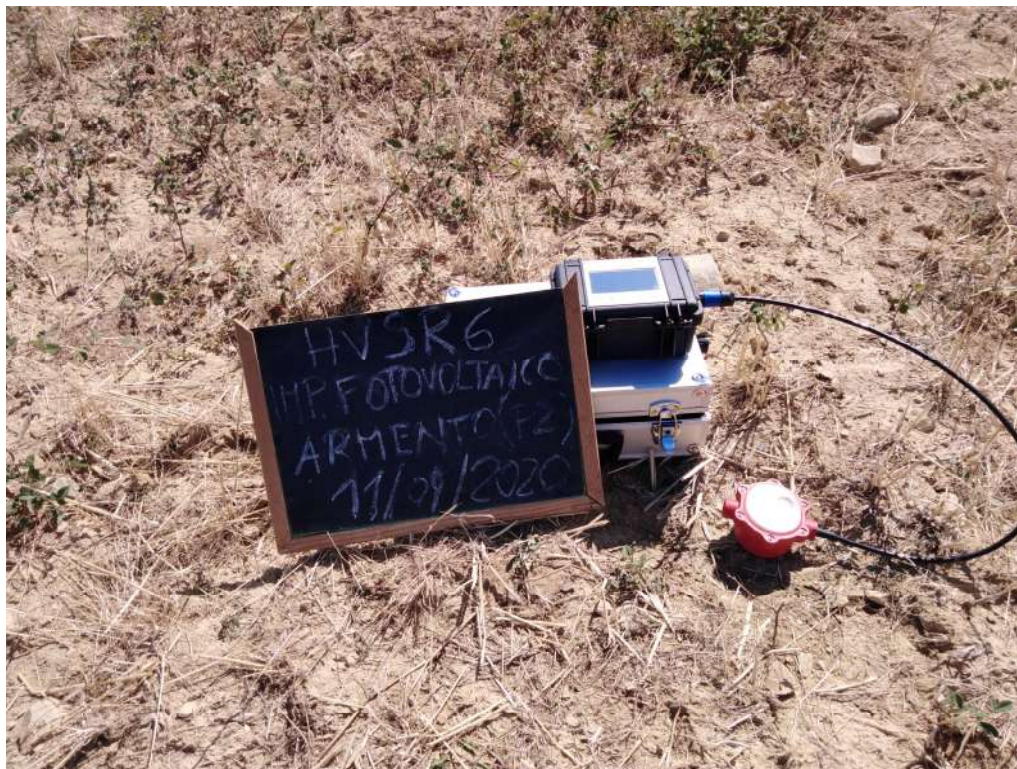 HVSR6
IMP. FOTOVOLTAICO
ARMENTO (PZ)
11/09/2020